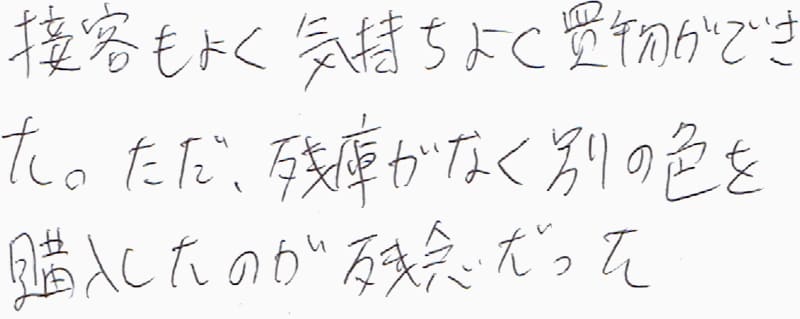 接客もよく気持ちよく買物ができ
た。ただ、残庫がなく別の色を
購入したのが残念だった